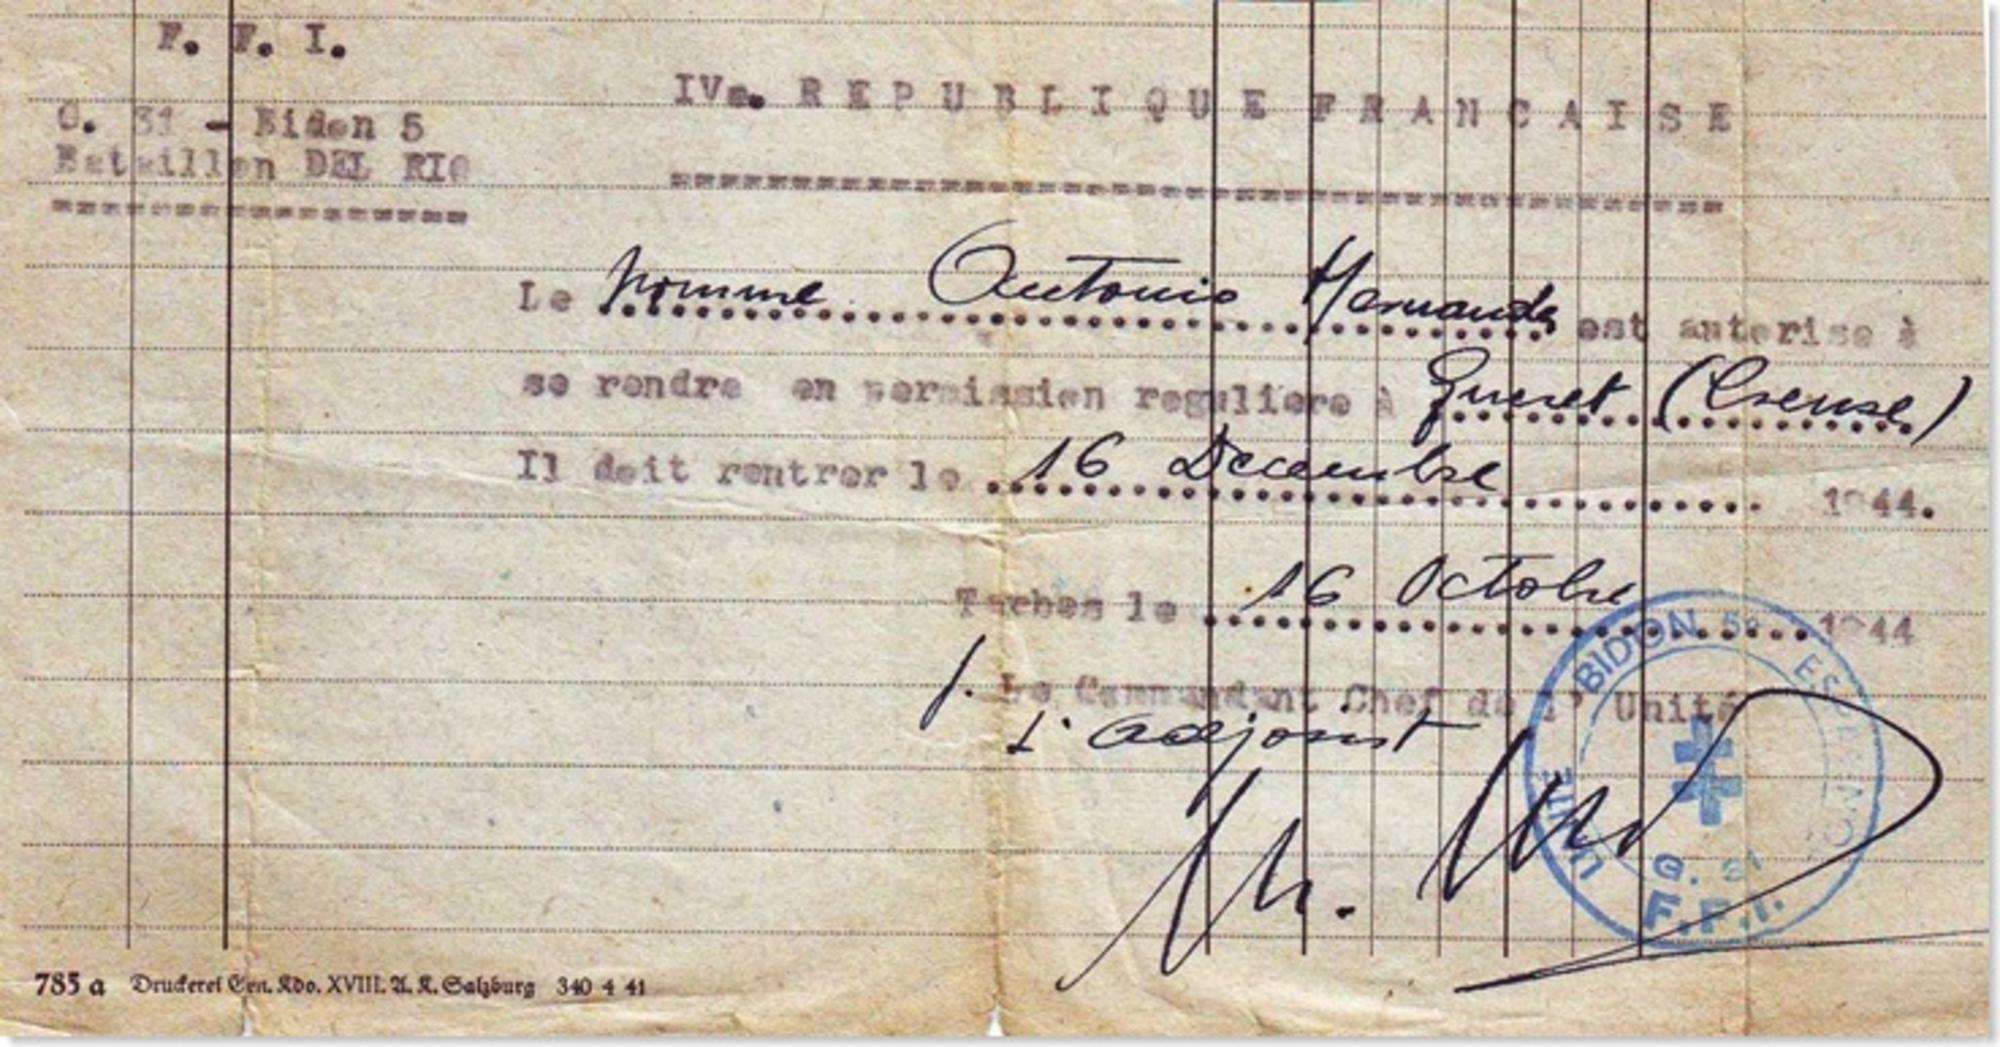 F. F. I.
G. 31 - Bidon 5
Bataillon DEL RIO
IVe. REPUBLIQUE FRANCAISE
Le nommé Antonio Hernandez est autorise à
se rendre en permission reguliere à Gueret (Creuse)
Il doit rentrer le 16 Decembre 1944.
Tarbes le 16 Octobre 1944
p. Le Commandant Chef de l' Unité
L'adjoint
UNITE BIDON 5
G. 31
F.F.I.
785 a Druckerei Gen. Kdo. XVIII. A. K. Salzburg 340 4 41